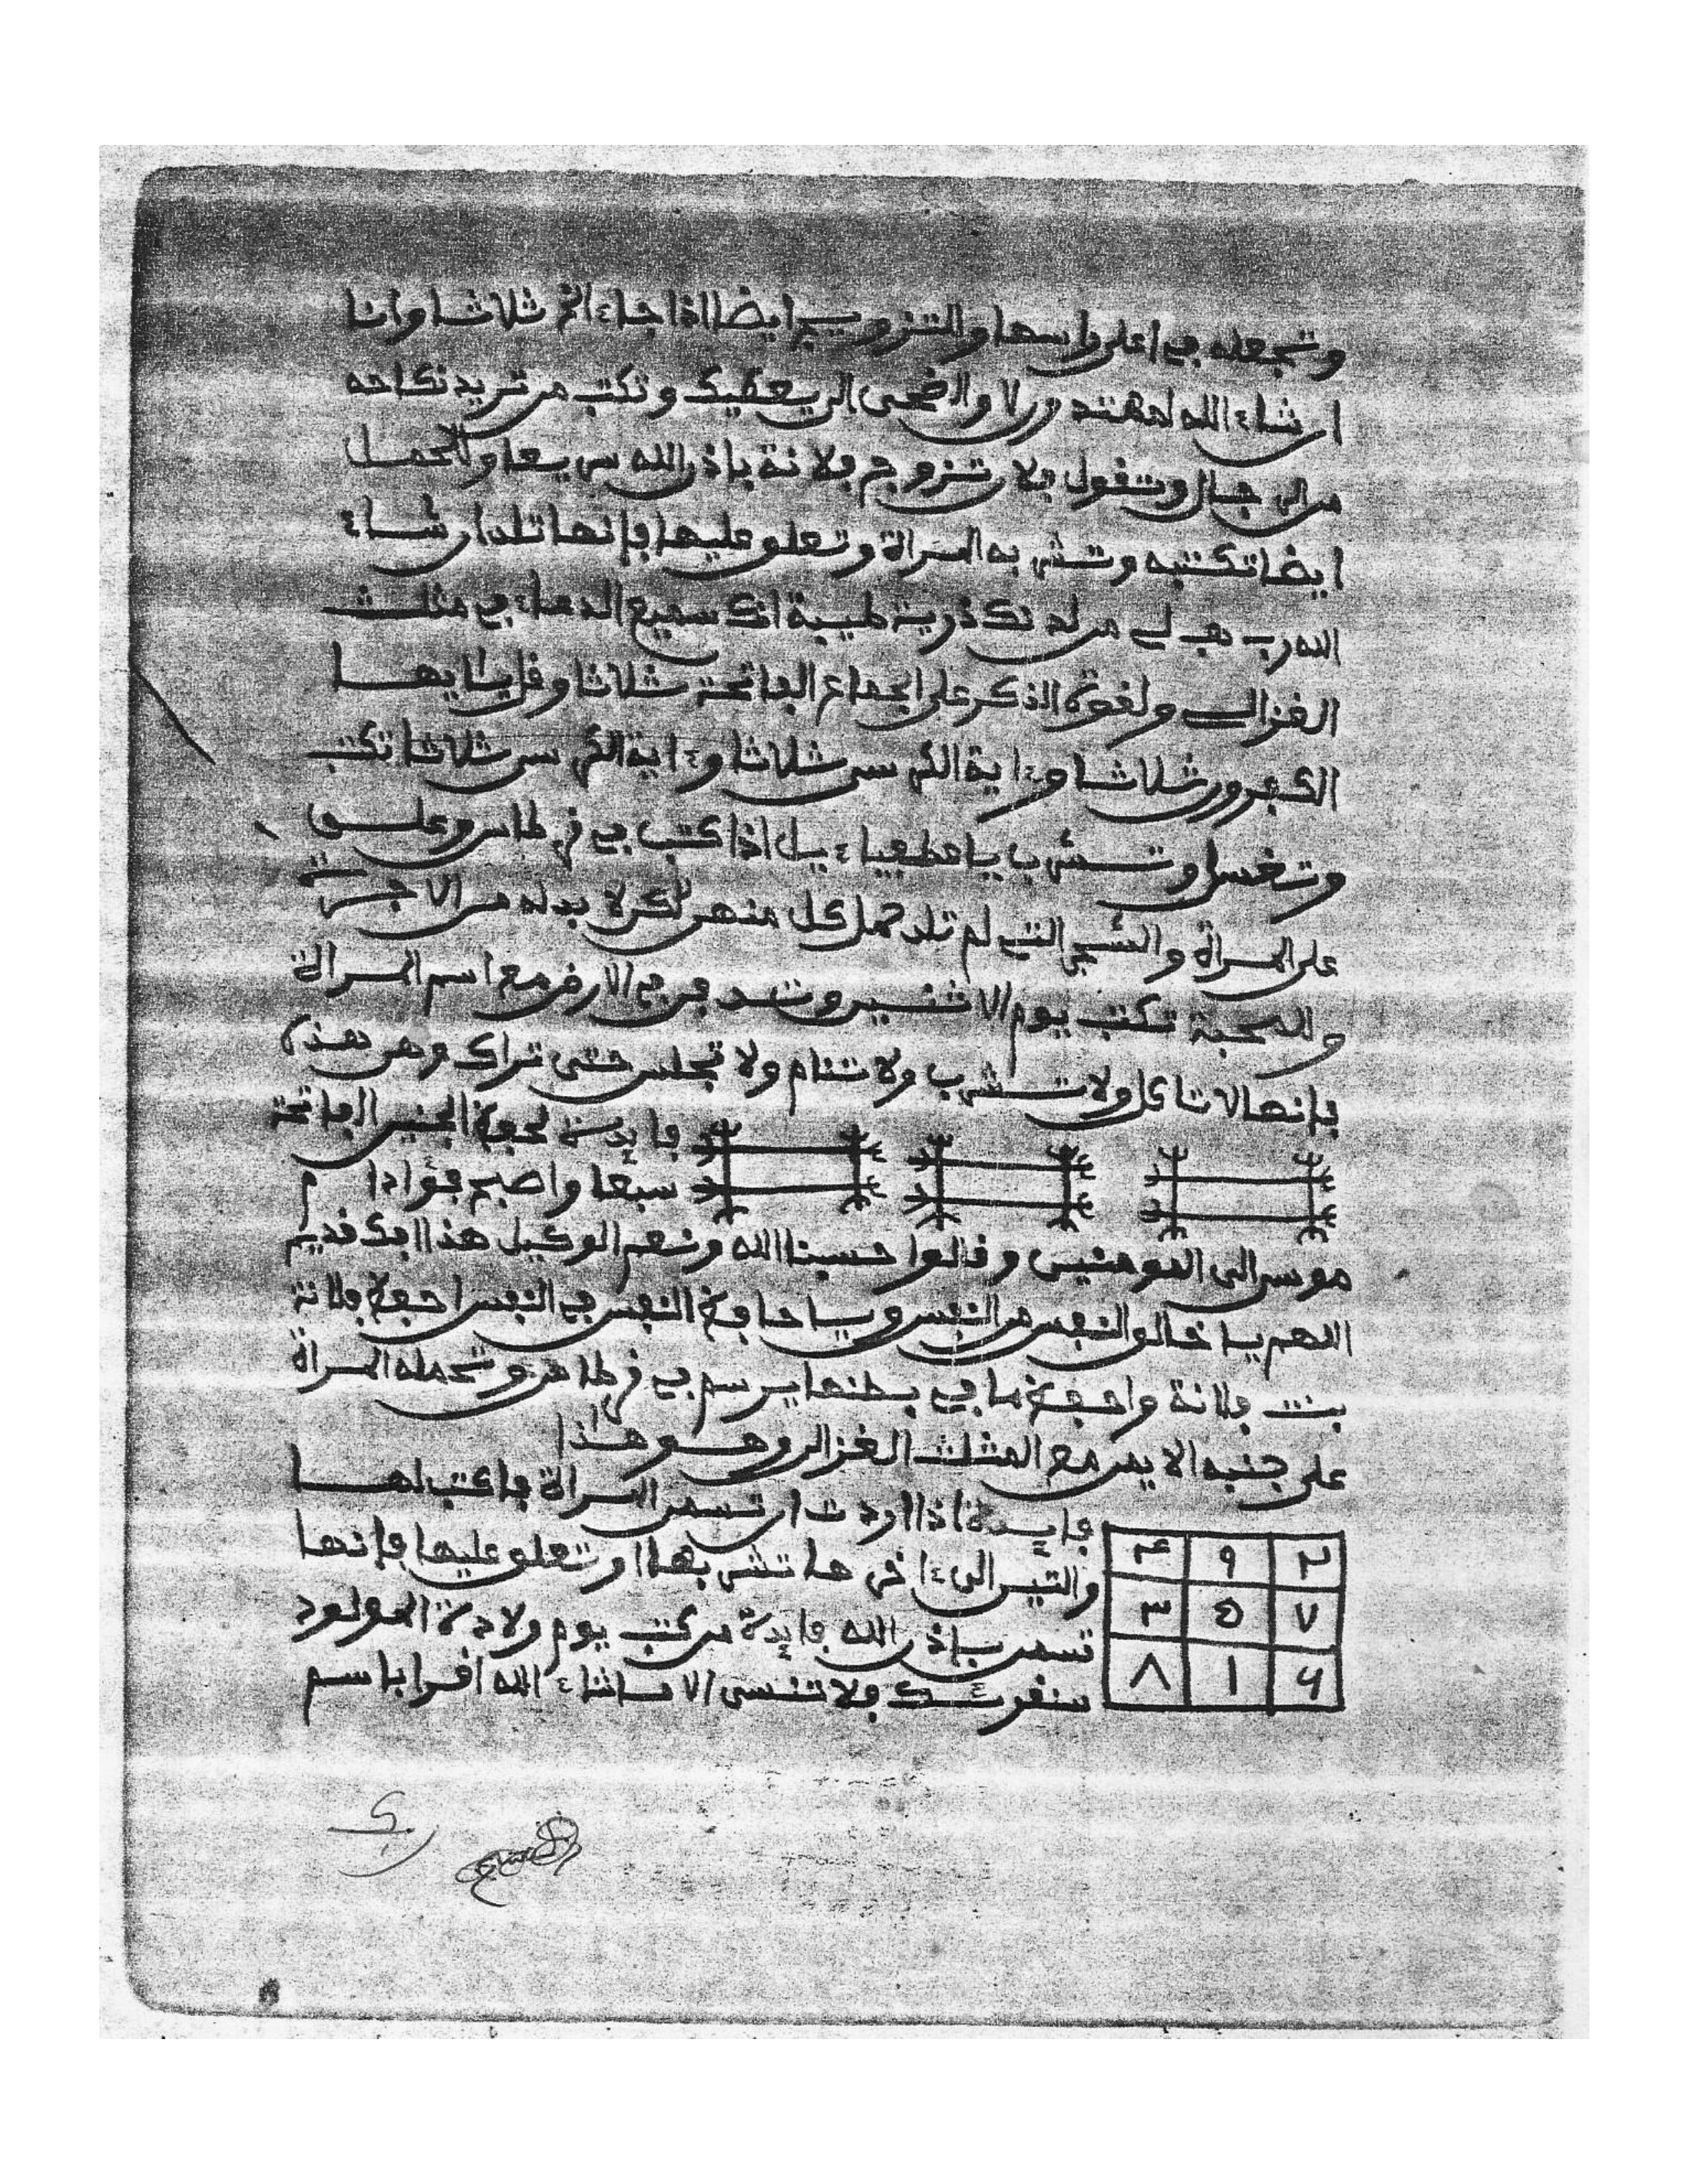 وتجعله في اعلى راسها والتزويج ايضا اذا جاء الخ ثلاثا وانا
ان شاء الله لمهتدون والضحى الى يعطيك وتكتب من تريد نكاحه
من الرجال وتقول فلان تزوج فلانة باذن الله سريعا وللحمل
ايضا تكتبه وتشربه المراة وتعلق عليها فإنها تلد ان شاء
الله رب هب لي من لدنك ذرية طيبة انك سميع الدعاء في مثلث
الغزالي ولقوة الذكر على الجماع الفاتحة ثلاثا وقل يا ايها
الكافرون ثلاثا وءاية الكرسى ثلاثا وءاية الكرسى ثلاثا تكتب
وتغسل وتشرب اذا كتب في قرطاس وعلق
على المراة والشجر التي لم تلد حمل كل منهن لاكن لا بد له من الاجرة
والمحبة تكتب يوم الاثنين وتدفن في الارض مع اسم المراة
فإنها لا تاكل ولا تشرب ولا تنام ولا تجلس حتى تراك وهي هذه
فايدة لحفظ الجنين الفاتحة
سبعا واصبح فؤاد ام
موسى الى المومنين وقالوا حسبنا الله ونعم الوكيل هذا افك قديم
اللهم يا خالق النفس من النفس ويا حافظ النفس في النفس احفظ فلانة
بنت فلانة واحفظ ما في بطنها يرسم في قرطاس وتحمله المراة
على جنبه الايمن مع المثلث الغزالي وهو هذا
فايدة اذا اردت ان تسمن المراة فاكتب لها
والتين الى ءاخرها تشربها او تعلق عليها فإنها
تسمن بإذن الله فايدة من كتب يوم ولادة المولود
سنقرئك فلا تنسى الا ما شاء الله اقرا باسم
٤ ٩ ٢
٣ ٥ ٧
٨ ١ ٦